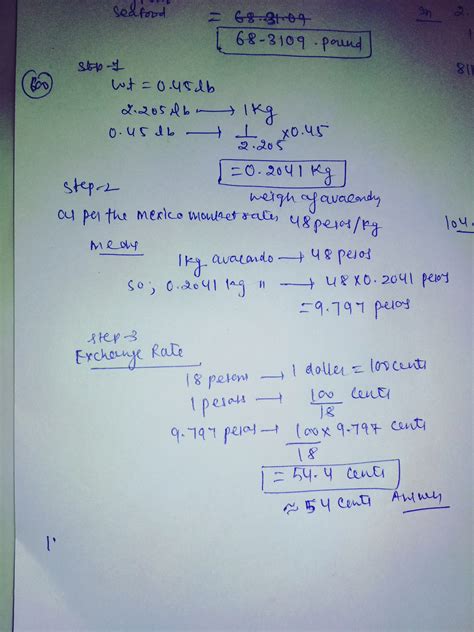 Seafood = 68.3109
68-3109 pound
Step-1
wt = 0.45 lb
2.205 lb → 1 kg
0.45 lb → 1/2.205 × 0.45
= 0.2041 kg
Step-2
weigh of avacardo
as per the mexico market rates 48 pesos/kg
104.
means
1kg avacando → 48 pesos
so; 0.2041 kg " → 48 × 0.2041 pesos
= 9.797 pesos
Step-3
Exchange Rate
18 pesons → 1 doller = 100 cents
1 pesos → 100/18 cents
9.797 pesos → 100 × 9.797/18 cents
= 54.4 cents
≈ 54 cents Answer